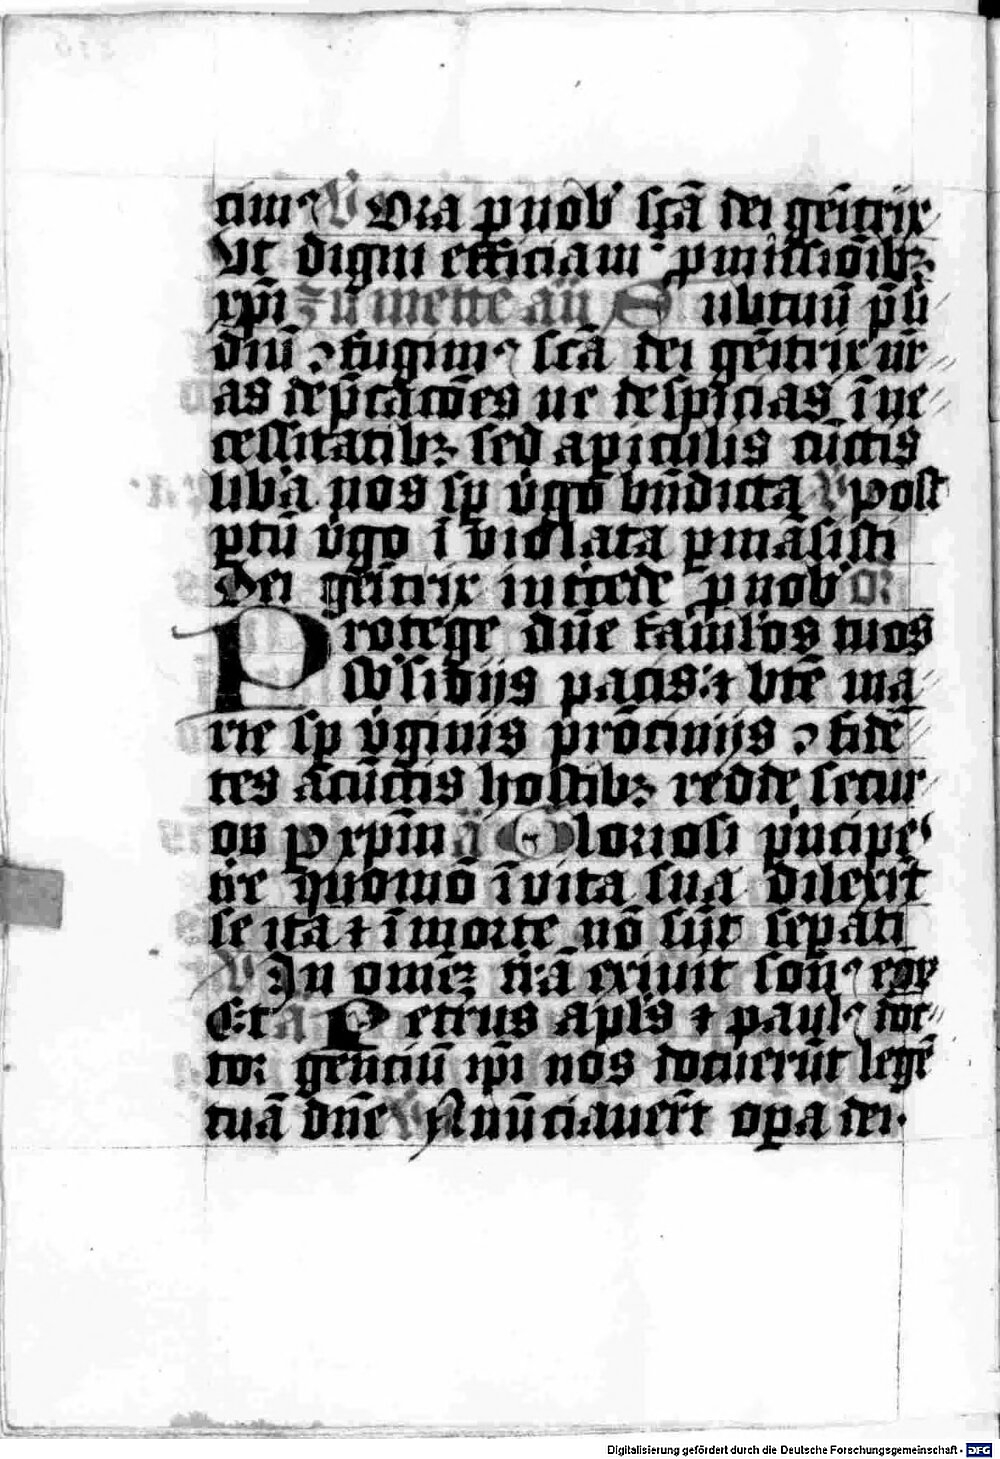 cimꝰ V Ora ꝓ nob̓ sc̄ā dei gēitrix
Vt digni efficiamꝰ ꝓmissiōibꝫ
xp̄i zu mette an̄ Sub tuū p̄si
diū ⁊ fugimꝰ sc̄ā dei gēitrix nr̄
as dep̄catōes ne despicias ī ne
cessitatibꝫ sed a piculis cūctis
lib̓a nos sp̄ v̓go bn̄dicta V post
ptū v̓go īviolata ꝑmāsisti
Dei gēitrix intcede ꝓ nob̓ or
Protege dn̄e famul̓os tuos
sb̓sidijs pacis ⁊ bt̄e ma
rie sp̄ v̓ginis prōcinijs ⁊ fide
tes a cūctis hostibꝫ redde secur
os ꝑ xp̄m a Gloriosi p̓ncipe
tr̄e quomō ī vita sua dilexr̄t
se ita ⁊ ī morte nō sūt sepati
V In omēꝫ tr̄ā exiuit sonꝰ eoꝝ
Et a Petrus apl̓s ⁊ paulꝰ doc
tor genciū ip̄i nos docuerūt legē
tuā dn̄e V Annūciauer̄t opa dei.
Digitalisierung gefördert durch die Deutsche Forschungsgemeinschaft - DFG